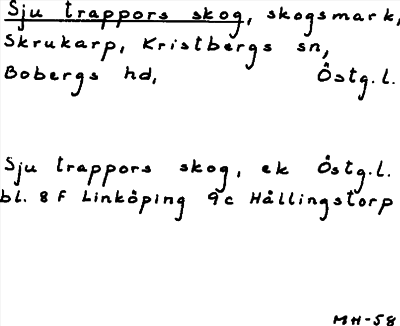 Sju trappors skog, skogsmark,
Skrukarp, Kristbergs sn,
Bobergs hd, Östg.l.
Sju trappors skog, ek Östg.l.
bl. 8 F Linköping 9c Hållingstorp
MH-58